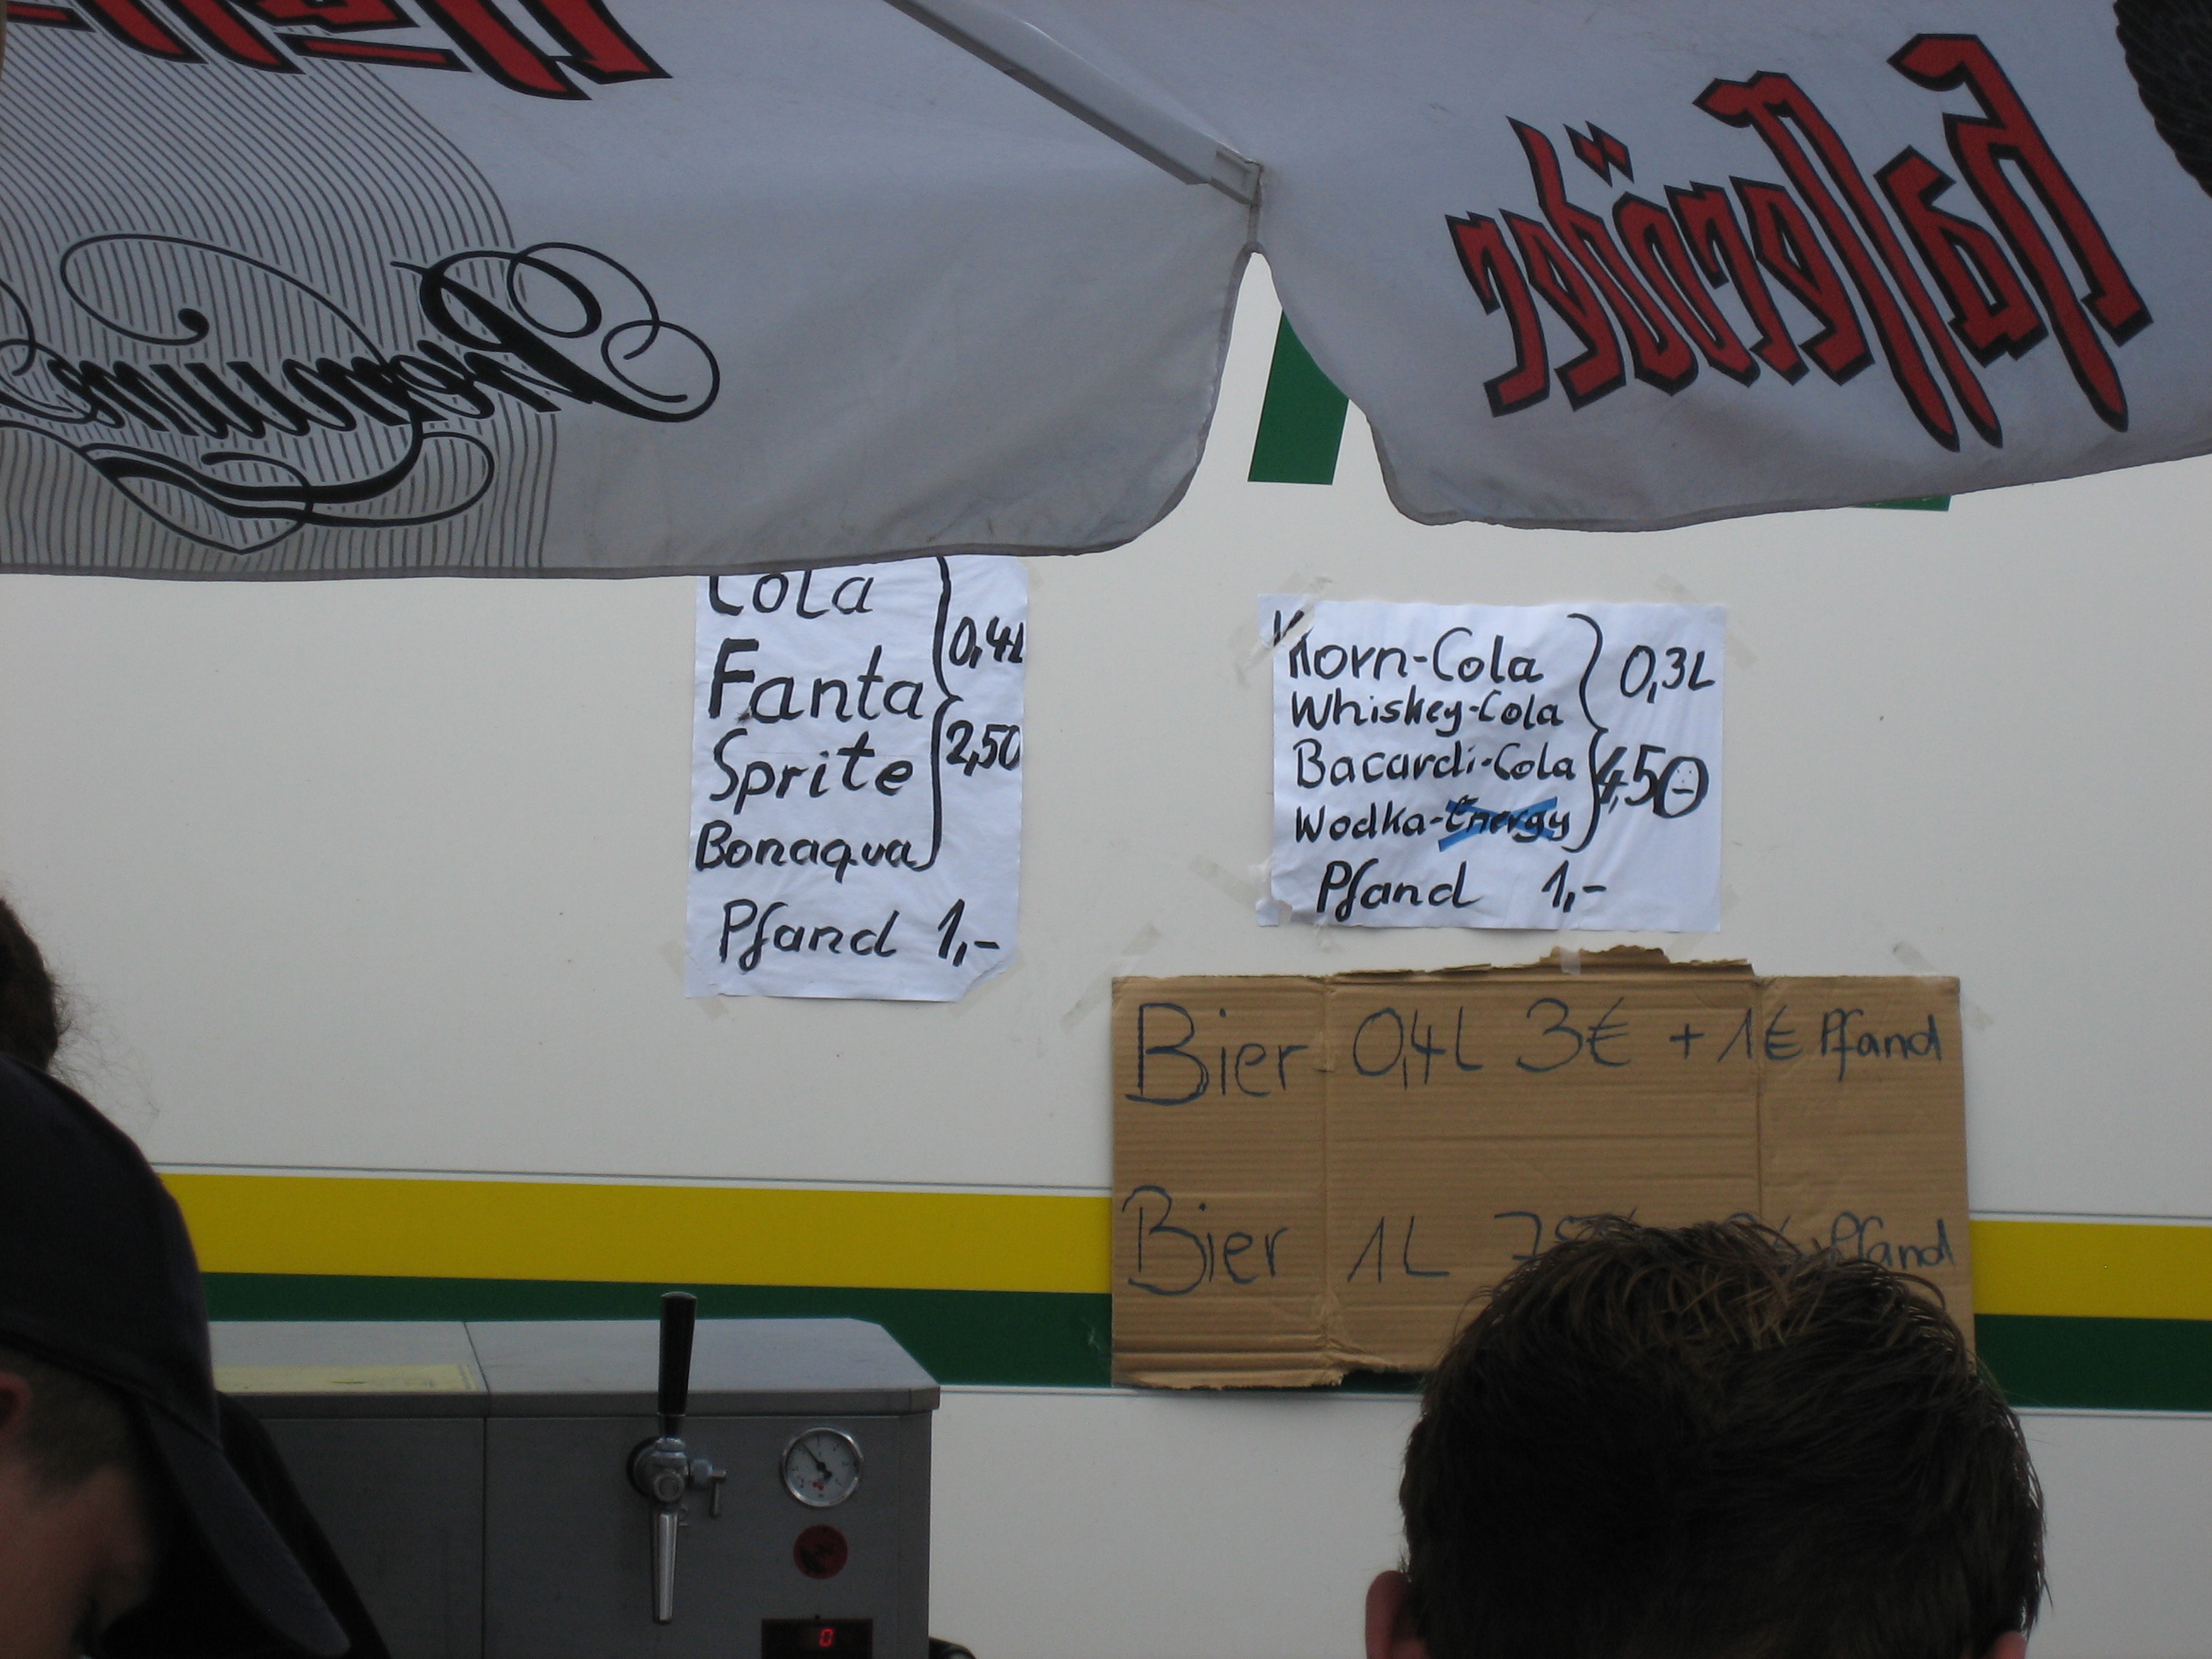 Hasseröder
Premium
Cola
Fanta
Sprite
Bonaqua
0,4L
2,50
Pfand 1,-
Korn-Cola
Whiskey-Cola
Bacardi-Cola
Wodka-Energy
0,3L
4,50
Pfand 1,-
Bier 0,4L 3€ + 1€ Pfand
Bier 1L Pfand
0